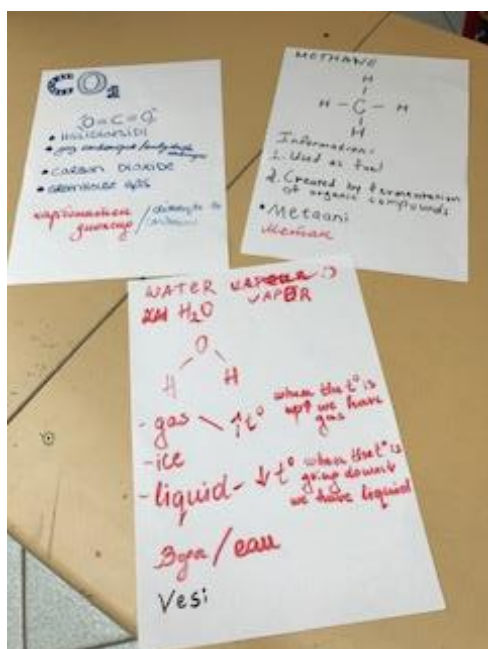 CO₂
O=C=O
• HIILIDIOKSIDI
• gaz carbonique/
• CARBON DIOXIDE
• GREENHOUSE GAS
METHANE
H
H - C - H
H
Information:
1. Used as fuel
2. Created by fermentation
of organic compounds
• Metaani
Метан
WATER
VAPOR
H₂O
O
H H
- gas ↑t° when the t° is
up↑ we have
gas
- ice
- liquid - ↓t° when the t° is
going down↓
we have liquid
/eau
Vesi